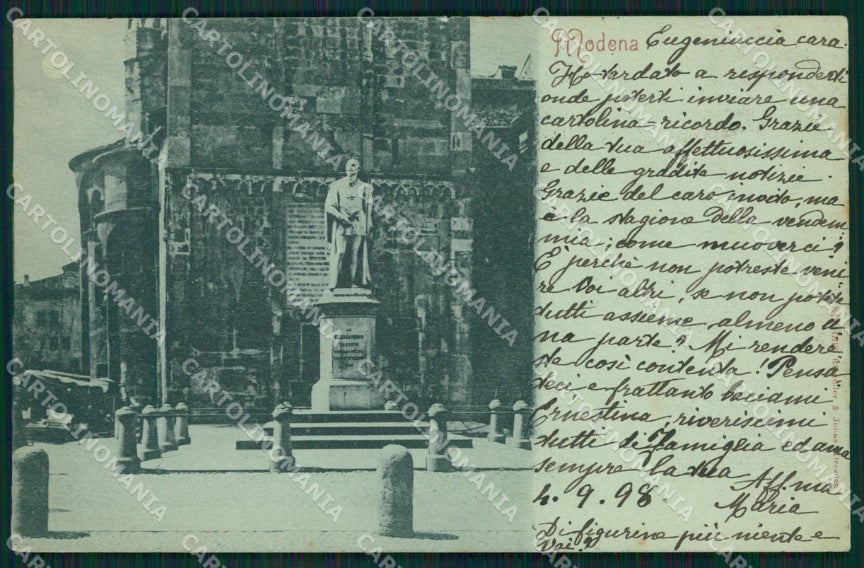 Modena Eugeniuccia cara.
Ho tardato a risponderti
onde poterti inviare una
cartolina ricordo. Grazie
della tua affettuosissima
e delle gradite notizie.
Grazie del caro invito, ma
è la stagione della vendem
mia; come muoverci?
E perchè non potreste veni
re Voi altri, se non potete
tutti assieme almeno u
na parte? Mi rendere
te così contenta! Pensa
teci e frattanto baciami
Ernestina riveriscimi
tutti di famiglia ed ama
sempre la tua
4.9.98 Aff.ma
Maria
Di figurine più niente e
Voi?
CARTOLINOMANIA